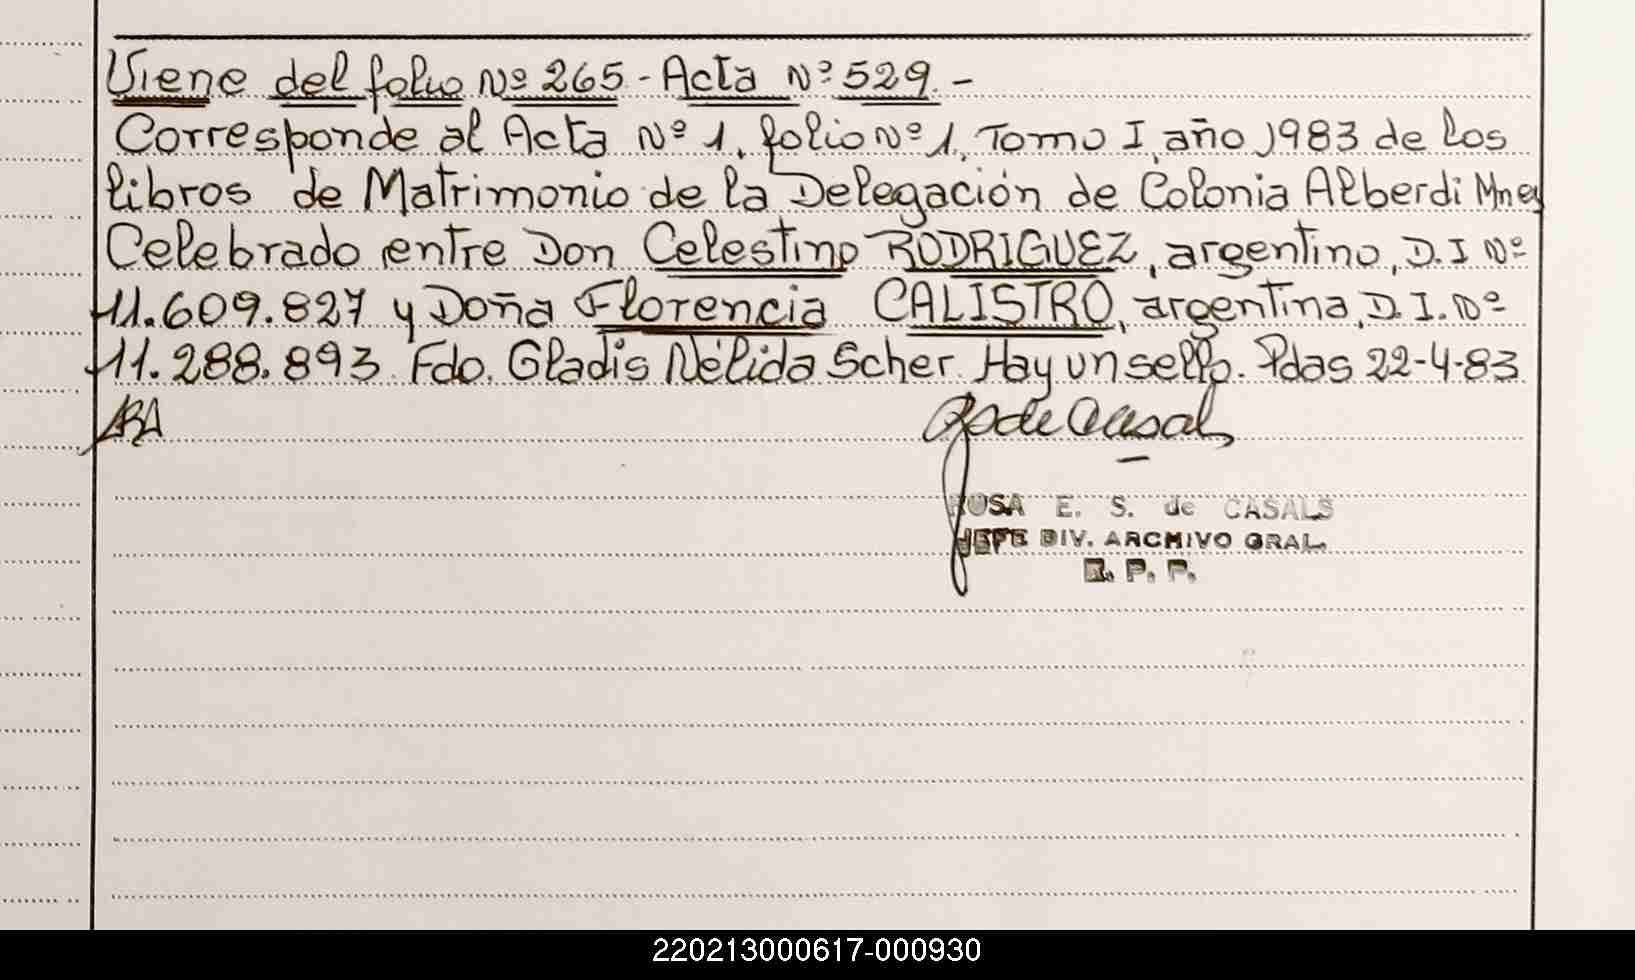 Viene del folio Nº 265 - Acta Nº 529 -
Corresponde al Acta Nº 1, folio Nº 1, Tomo I, año 1983 de los
libros de Matrimonio de la Delegación de Colonia Alberdi Mnes
Celebrado entre Don Celestino RODRIGUEZ, argentino, D.I Nº
11.609.827 y Doña Florencia CALISTRO, argentina, D.I. Nº
11.288.893. Fdo. Gladis Nélida Scher. Hay un sello. Pdas 22-4-83
de Casals
ROSA E. S. de CASALS
JEFE DIV. ARCHIVO GRAL.
R. P. P.
220213000617-000930